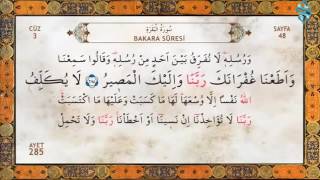 CÜZ
3
سُورَةُ الْبَقَرَةِ
BAKARA SÛRESİ
SAYFA
48
وَرُسُلِهِ لَا نُفَرِّقُ بَيْنَ اَحَدٍ مِنْ رُسُلِهِ وَقَالُوا سَمِعْنَا
وَاَطَعْنَا غُفْرَانَكَ رَبَّنَا وَاِلَيْكَ الْمَصِيرُ لَا يُكَلِّفُ
اللّٰهُ نَفْسًا اِلَّا وُسْعَهَا لَهَا مَا كَسَبَتْ وَعَلَيْهَا مَا اكْتَسَبَتْ
رَبَّنَا لَا تُؤَاخِذْنَا اِنْ نَسِينَا اَوْ اَخْطَأْنَا رَبَّنَا وَلَا تَحْمِلْ
AYET
285